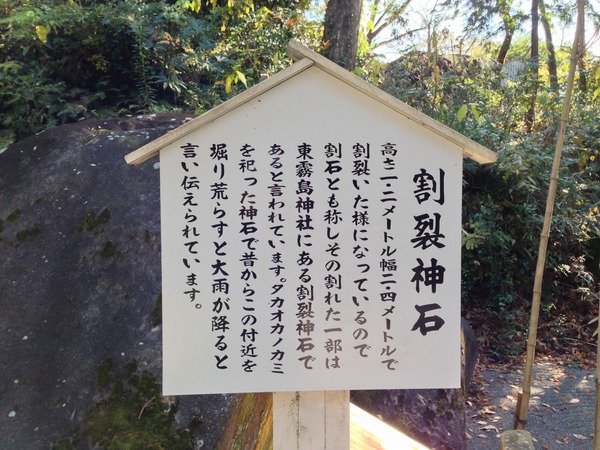 割裂神石
高さ二・二メートル幅二・四メートルで
割裂いた様になっているので
割石とも称しその割れた一部は
東霧島神社にある割裂神石で
あると言われています。タカオカノカミ
を祀った神石で昔からこの付近を
堀り荒らすと大雨が降ると
言い伝えられています。